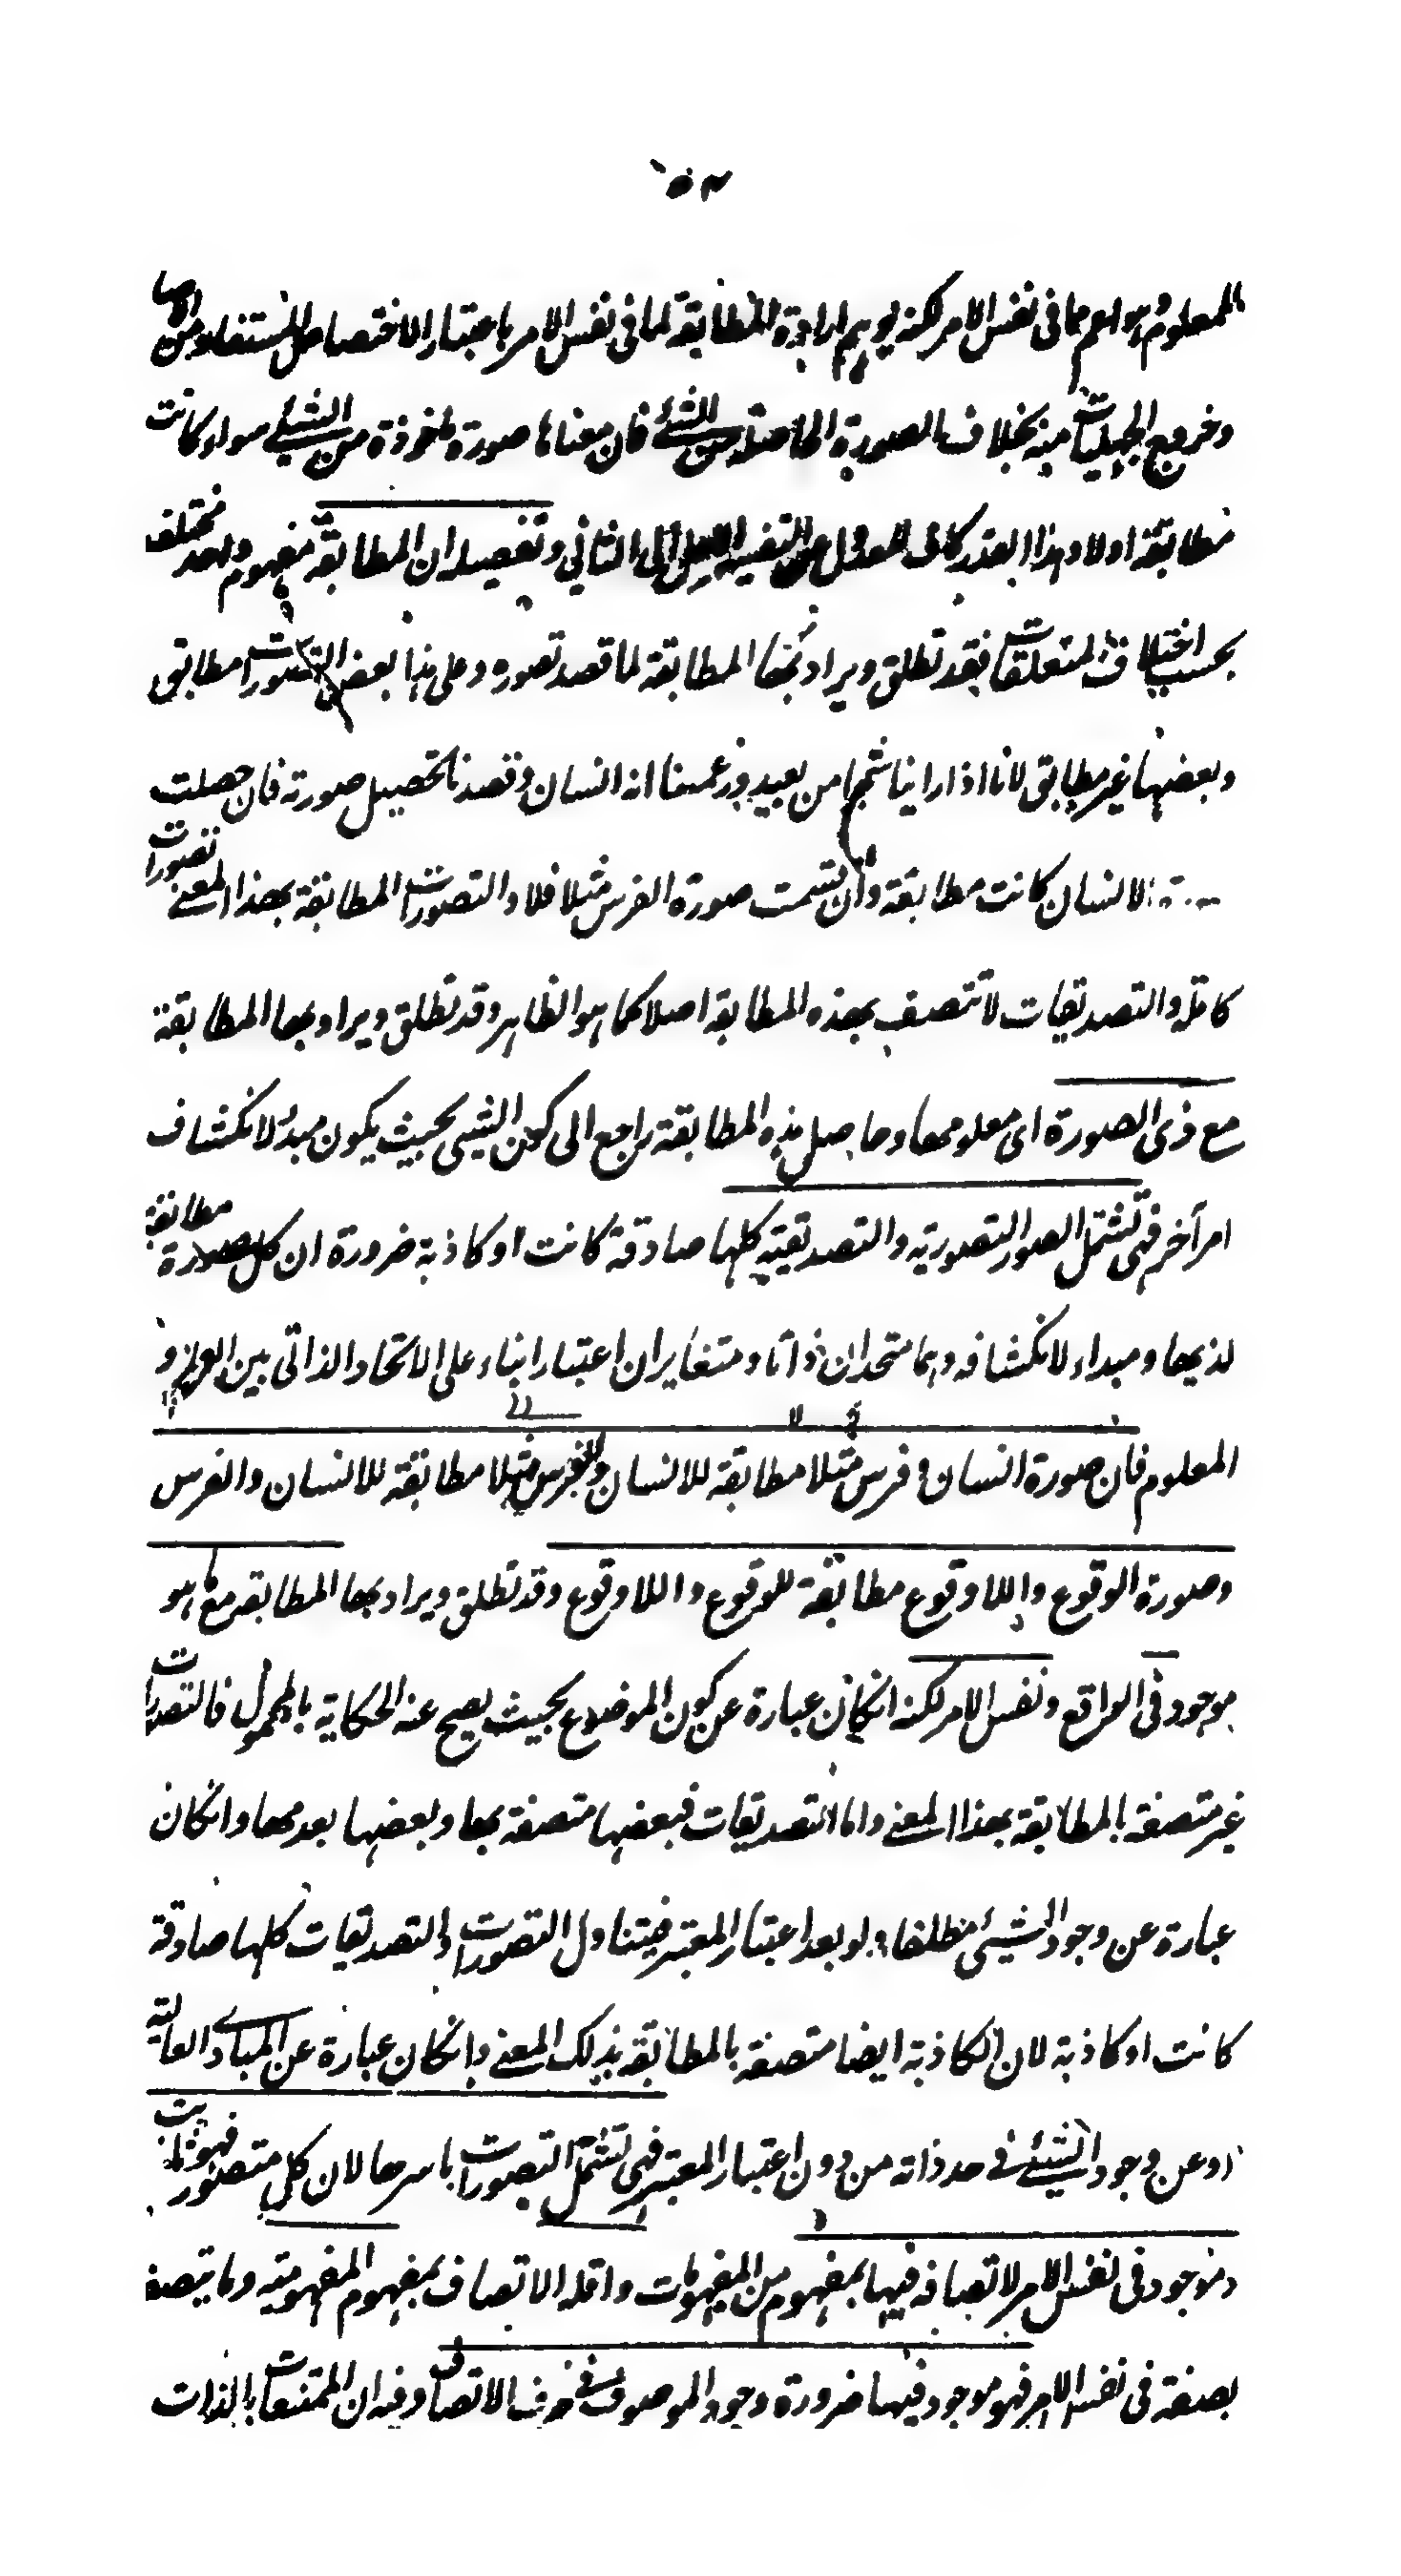 للمعلوم وهو اعم مما فى نفس الامر لكنه يوهم ارادة المطابقة لما فى نفس الامر باعتبار الاختصاص المستفاد من الاضا
وخروج الجهليات منه بخلاف الصورة الحاصلة من الشئ فان معناها صورة ماخوذة من الشئ سواء كانت
مطابقة اولا وهذا القدر كاف للعدول عن التفسير الاول الى الثانى وتفصيله ان المطابقة مفهوم واحد مختلف
بحسب اختلاف المتعلقات فقد تطلق ويراد بها المطابقة لما قصد تصوره وعلى هذا بعض التصورات مطابق
وبعضها غير مطابق لانا اذا راينا شبحا من بعيد وزعمنا انه انسان وقصدنا تحصيل صورته فان حصلت
الانسان كانت مطابقة وان تسمت صورة الفرس مثلا فلا والتصورات المطابقة بهذا المعنى تصورات
كاملة والتصديقات لا تتصف بهذه المطابقة اصلا كما هو الظاهر وقد تطلق ويراد بها المطابقة
مع ذى الصورة اى معلومها وحاصل هذه المطابقة راجع الى كون الشئ بحيث يكون مبدأ لانكشاف
امر آخر فهى تشتمل الصور التصورية والتصديقية كلها صادقة كانت او كاذبة ضرورة ان كل صورة مطابقة
لذيها ومبداء لانكشافه وهما متحدان ذاتا ومتغايران اعتبارا بناء على الاتحاد الذاتى بين العلم و
المعلوم فان صورة انسان وفرس مثلا مطابقة للانسان والفرس مثلا مطابقة للانسان والفرس
وصورة الوقوع واللاوقوع مطابقة للوقوع واللاوقوع وقد تطلق ويراد بها المطابقة مع ما هو
موجود فى الواقع ونفس الامر لكنه انكان عبارة عن كون الموضوع بحيث يصح عنه الحكاية بالمحمول فالتصورات
غير متصفة بالمطابقة بهذا المعنى واما التصديقات فبعضها متصفة بها وبعضها بعدمها وانكان
عبارة عن وجود الشئ مطلقا ولو بعد اعتبار المعتبر فيتناول التصورات والتصديقات كلها صادقة
كانت او كاذبة لان الكاذبة ايضا متصفة بالمطابقة بذلك المعنى وانكان عبارة عن المبادى العالية
او عن وجود الشئ فى حد ذاته من دون اعتبار المعتبر فهى تشتمل التصورات باسرها لان كل متصور فهو ثابت
وموجود فى نفس الامر لاتصافه فيها بمفهوم من المفهومات واقله الاتصاف بمفهوم المفهومية وما يتصف
بصفة فى نفس الامر فهو موجود فيها ضرورة وجود الموصوف فى ظرف الاتصاف وفيه ان الممتنعات بالذات